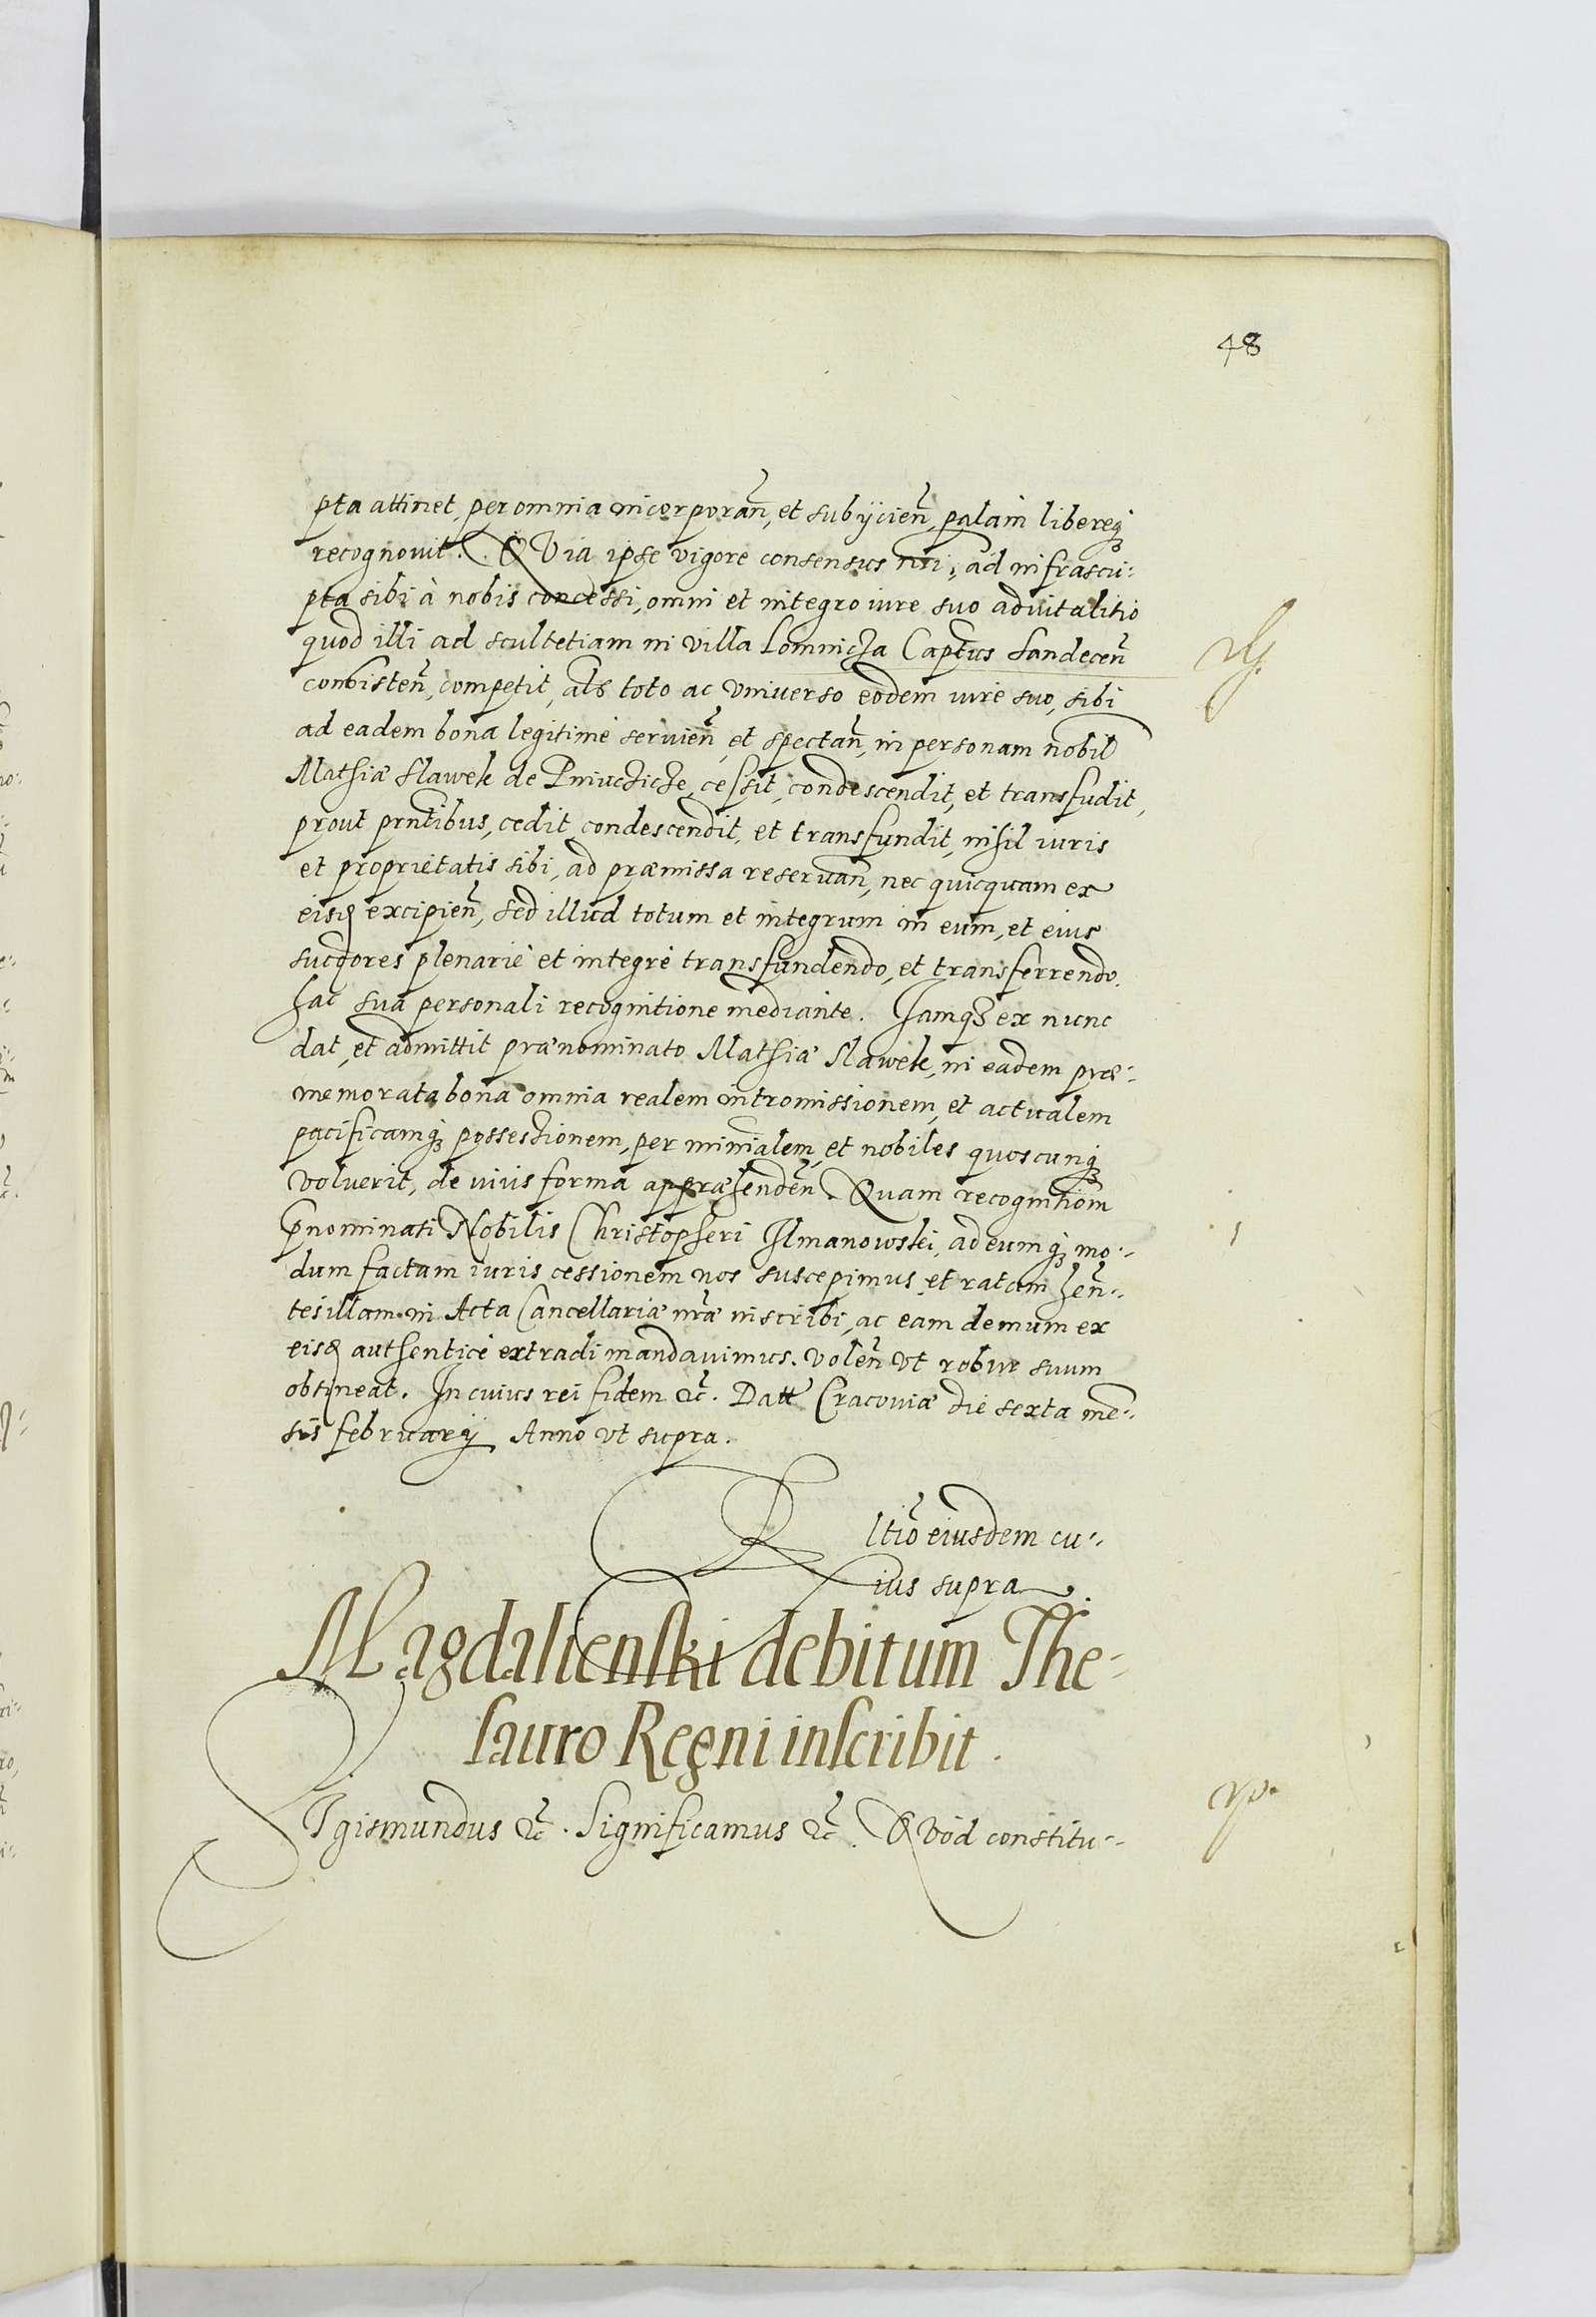 48
pta attinet, per omnia incorporan̄, et subijcien̄, palam libereq₃
recognouit. QVia ipse vigore consensus nr̄i, ad infrascri:
pta sibi à nobis concessi, omni et integro iure suo aduitalitio
quod illi ad scultetiam in villa Lomnicza Captūs Sandecen̄
consisten̄, competit, als̄ toto ac vniuerso eodem iure suo, sibi
ad eadem bona legitimè seruien̄, et spectan̄, in personam nobil
Mathiæ Slawek de Pniucticze, cessit, condescendit, et transfudit,
prout pn̄tibus, cedit, condescendit, et transfundit, nihil iuris
et proprietatis sibi, ad præmissa reseruan̄, nec quicquam ex
eisd excipien̄, sed illud totum et integrum in eum, et eius
succ̄ores plenariè et integrè transfundendo, et transferrendo.
hac sua personali recognitione mediante. Iamq₃ ex nunc
dat, et admittit prænominato Mathiæ Slawek, in eadem præ:
memorata bona omnia realem intromissionem, et actualem
pacificamq₃ possessionem, per min̄alem, et nobiles quoscunq₃
voluerit, de iuris forma appræhenden̄. Quam recognitiom̄
p̄nominati Nobilis Christopheri Ilmanowski, ad eumq₃ mo:
dum factam iuris cessionem nos suscepimus, et ratam hen̄:
tes illam in Acta Cancellariæ nr̄æ inscribi, ac eam demum ex
eisd authenticè extradi mandauimus. volen̄ vt robur suum
obtineat. In cuius rei fidem &c̄. Datt Cracouiæ die sexta men̄:
sis februarij Anno vt supra.
Rltiō eiusdem cu:
ius supra.
Magdalienski debitum The:
sauro Regni inscribit.
SIgismundus &c̄. Significamus &c̄. QVod constitu: